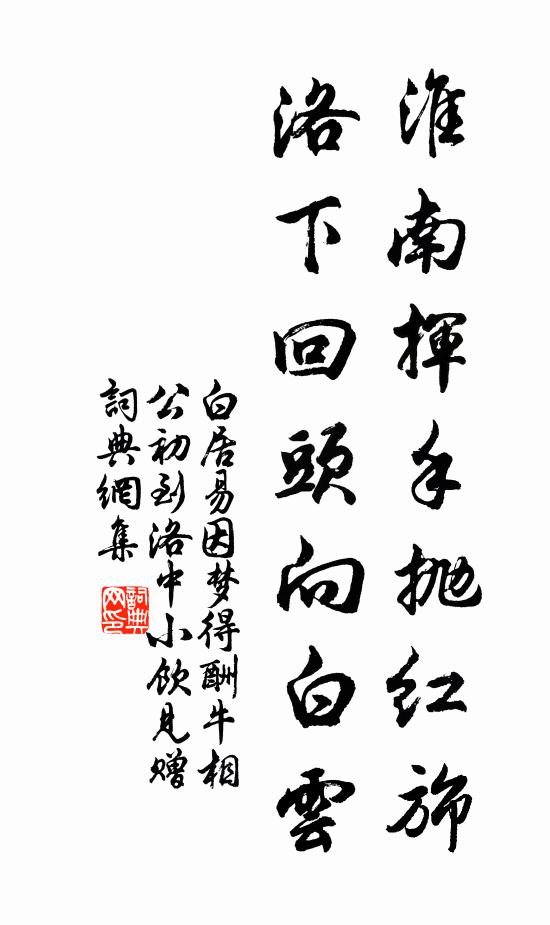 淮南揮手拋红旆
洛下回頭向白雲
白居易因梦得酬牛相
公初到洛中小飲見赠
詞典網集
詞典网印